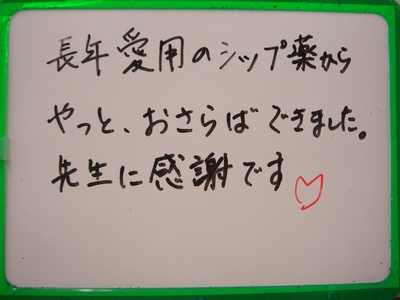 長年愛用のシップ薬から
やっと、おさらばできました。
先生に感謝です♡